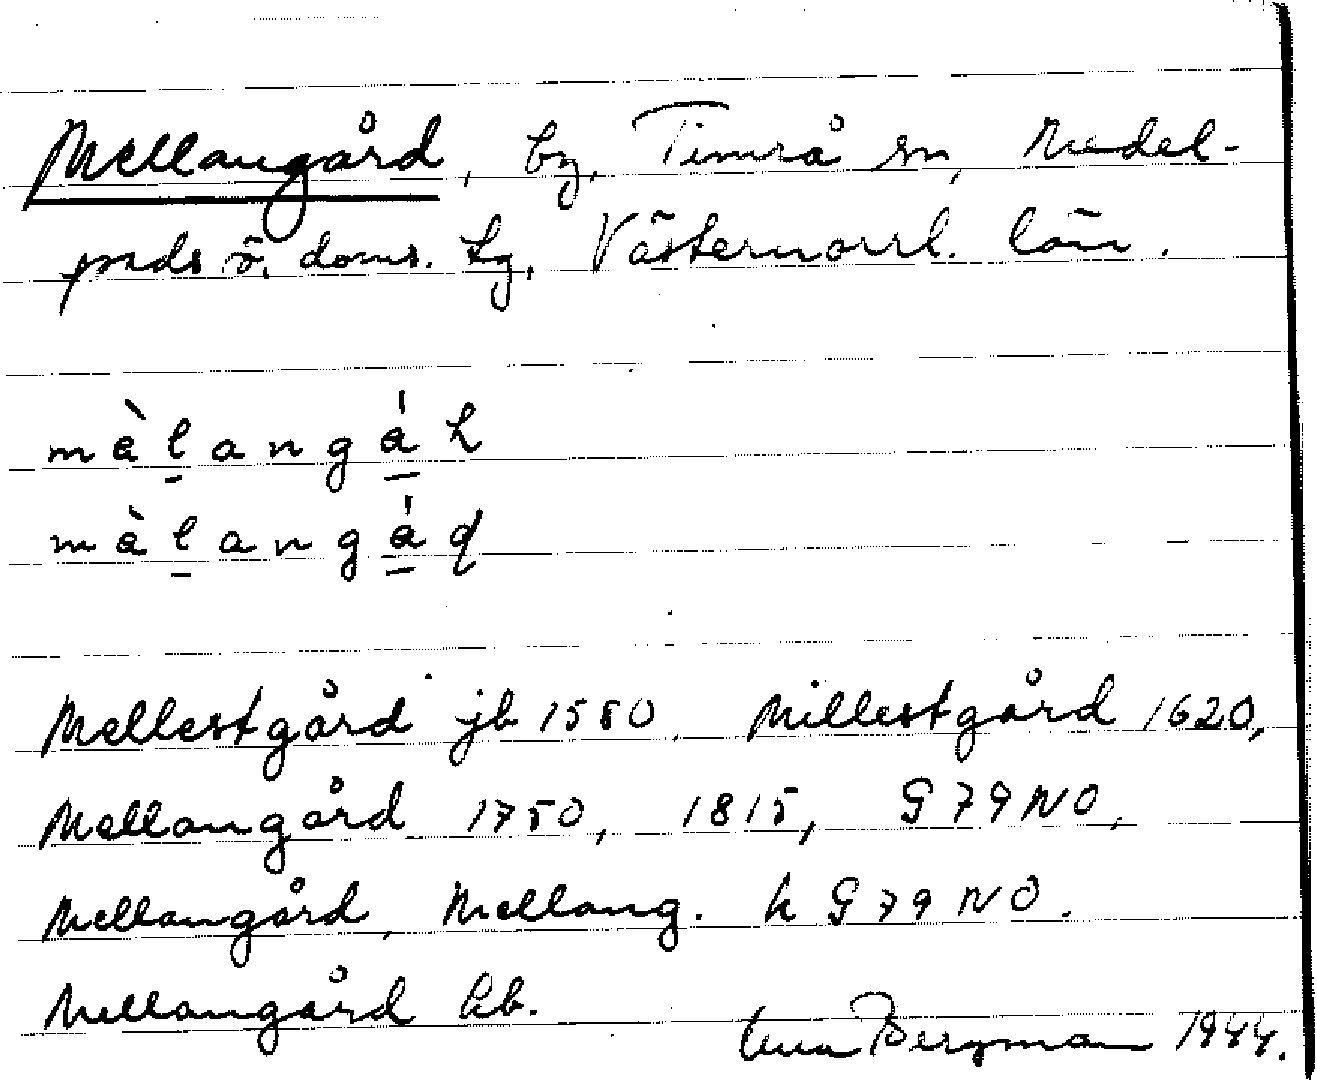 Mellangård, by, Timrå sn, Medel-
pads ö. doms. tg, Västernorrl. län.
màlangá
màlangá
Mellestgård jb 1550. Millestgård 1620,
Mellangård 1750, 1815, G79NO,
Mellangård, Mellang. k G79NO.
Mellangård kb.
Bergman 1944.